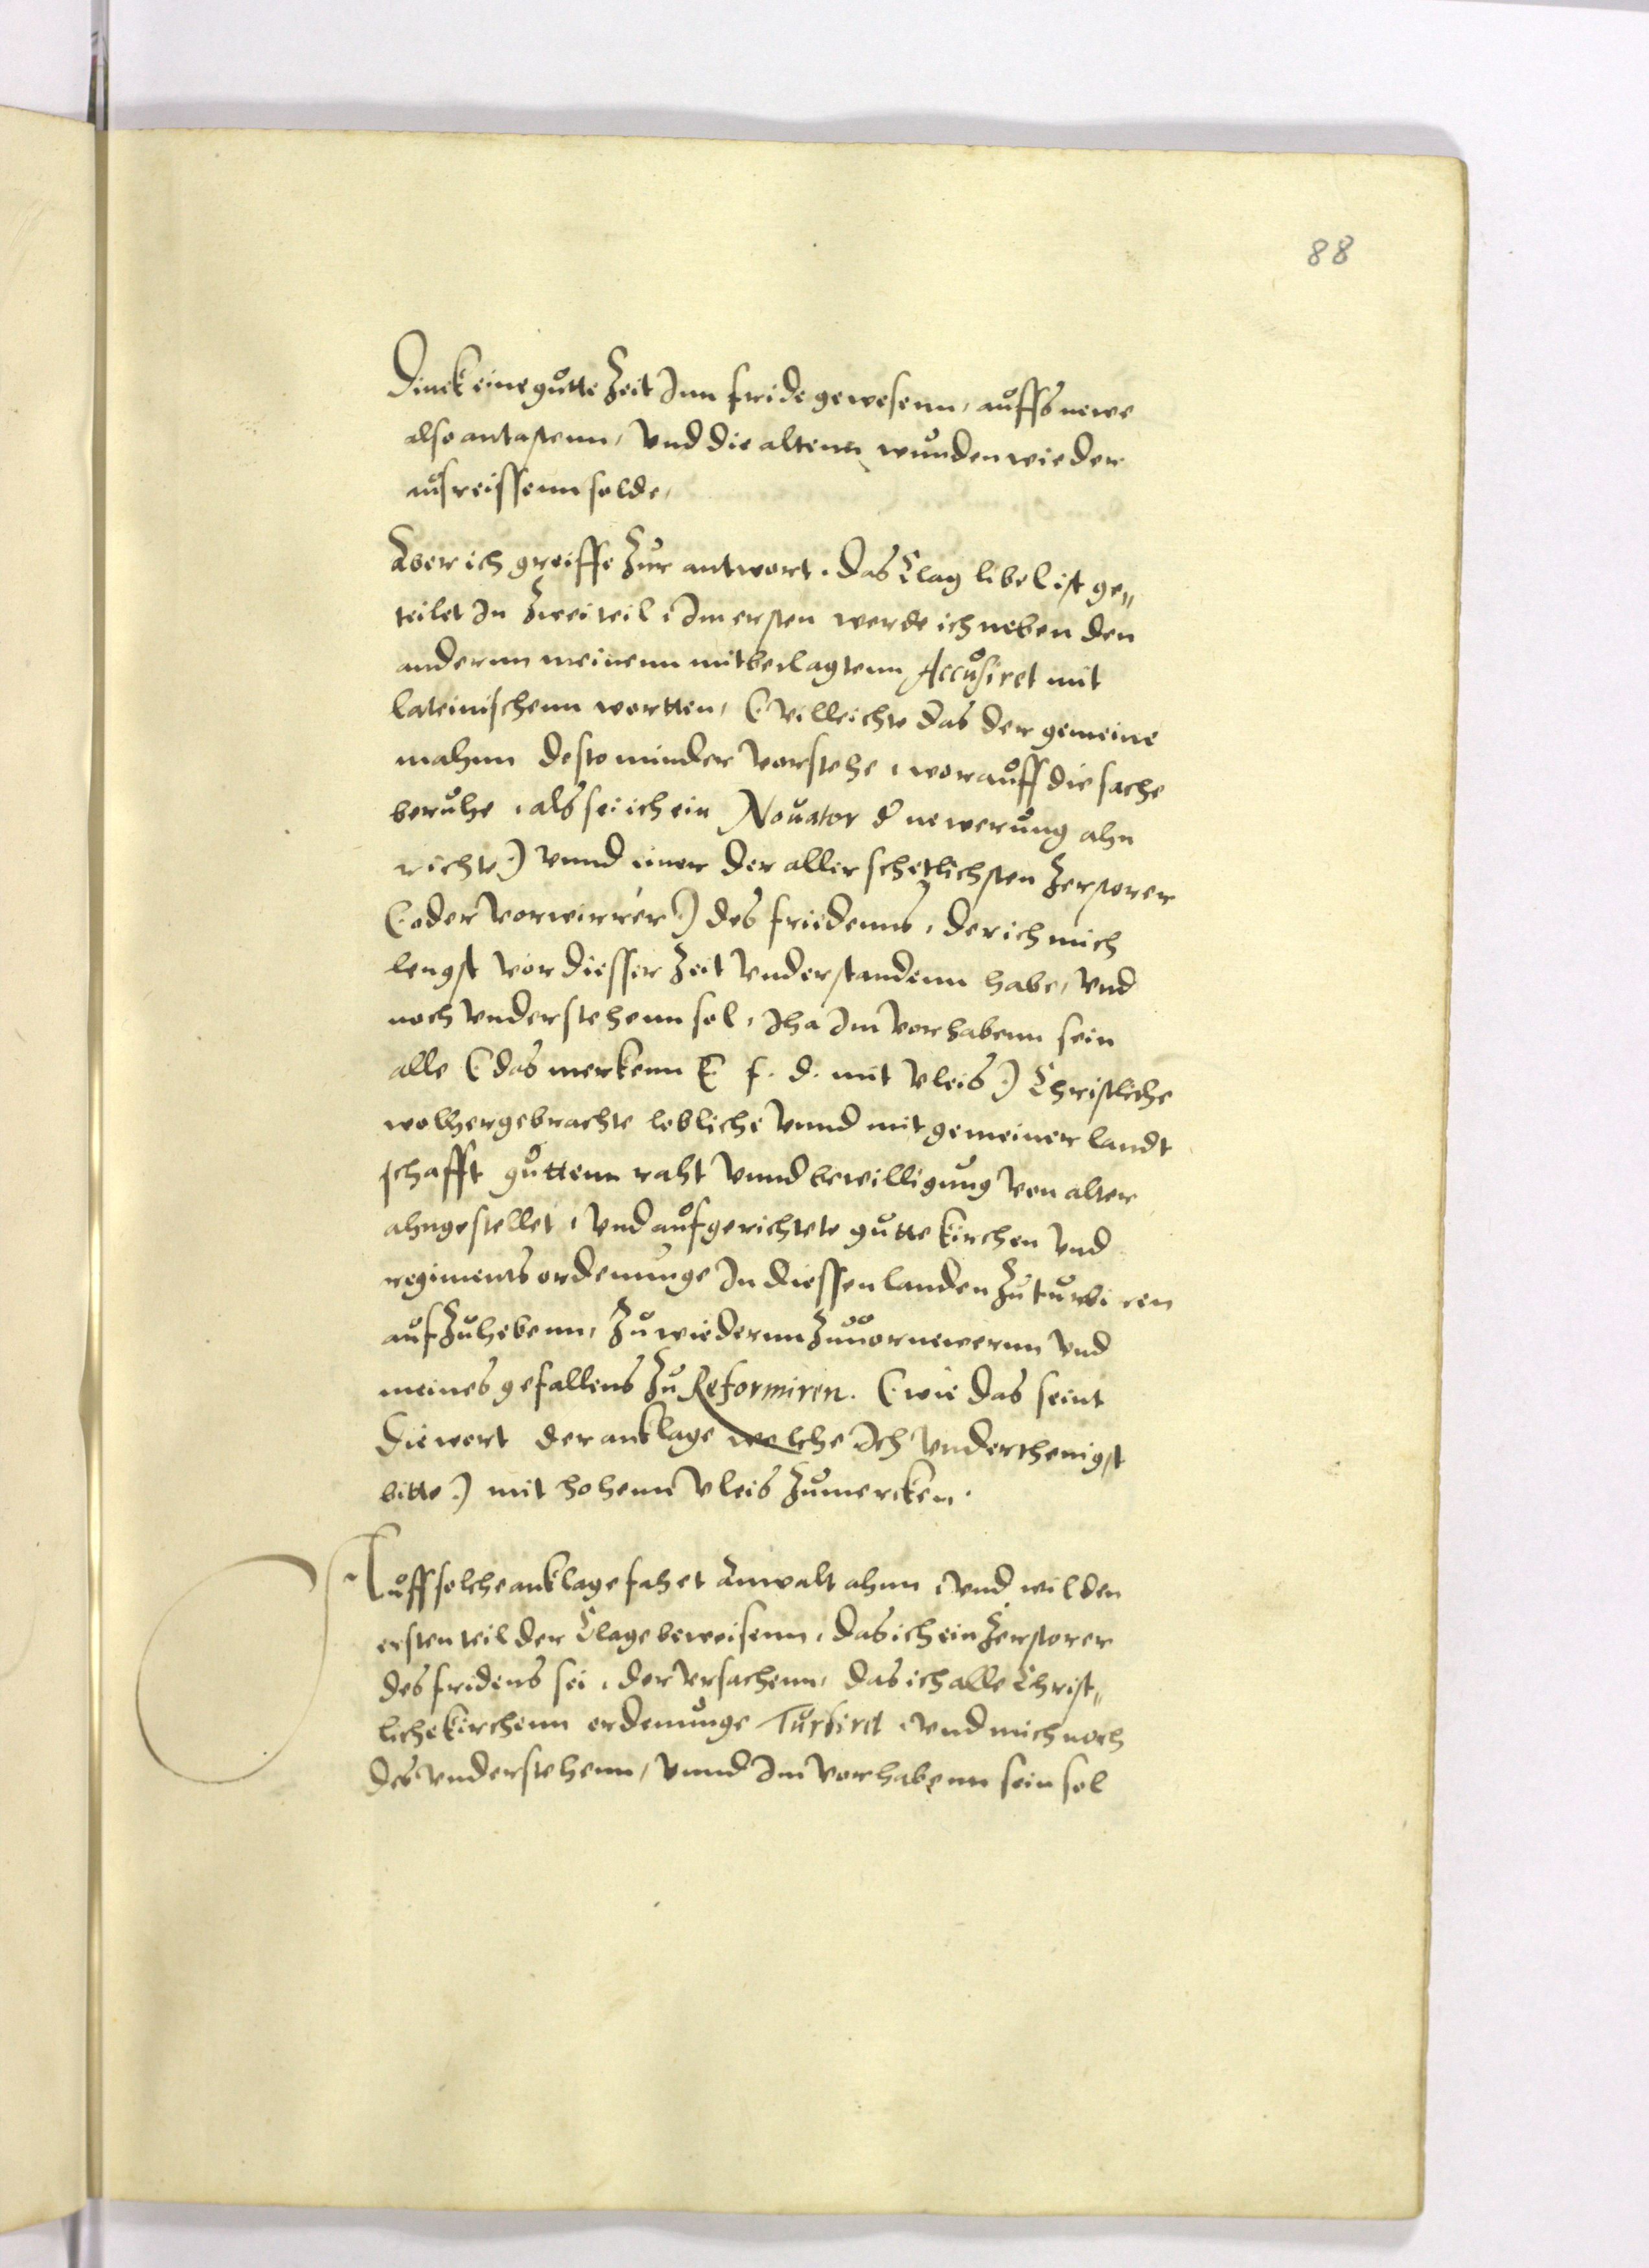 88
Dinck eine gutte Zeit Inn fride gewesenn, auffs newe
also antastenn, Vnd die altenn wunden wieder
aufreissenn solde,
Aber ich greiffe Zur antwort. das Clag libel ist ge„
teilet In Zwei teil, Im ersten werde ich neben den
andernn meinenn mitbeclagtenn Accusiret mit
lateinischenn wortten, (villeichte das der gemeine
mahnn desto minder vorstehe, worauff die sache
beruhe, als sei ich ein Nouator d newerung ahn
richte) vnnd einer der aller schetlichsten Zerstorer
(oder vorwirrer) des friedenns, der ich mich
lengst vor diesser Zeit vnderstandenn habe, vnd
noch vnderstehenn sol, Iha Im vorhabenn sein
alle (das merkenn E f. d. mit vleis) Christliche
wolhergebrachte lobliche vnnd mit gemeiner landt
schafft guttenn raht vnnd bewilligung von alter
ahngestellet, vnd aufgerichtete gutte kirchen vnd
regiments ordenunge In diessen landen Zu turbiren
auf Zuhebenn, Zuwiedernn Zuuornewernn vnd
meines gefallens Zu Reformiren. (wie das seint
die wort der anklage welche Ich vnderthenigst
bitte) mit hohem vleis Zumercken.
Auff solche anklage fahet Anwalt ahnn, vnd wil den
ersten teil der Clage beweisenn, das ich ein Zerstorer
des fridens sei, der vrsachenn, das ich alle Christ„
liche kirchenn ordenunge Turbiret, vnd mich noch
des vnderstehenn, vnnd Im vorhabenn sein sol